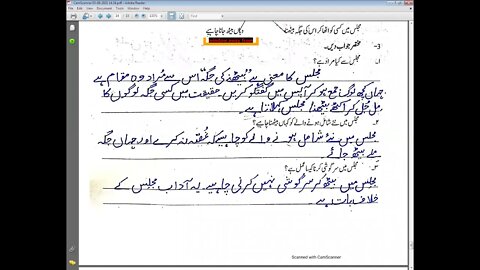 CamScanner 01-08-2021 14.34.pdf - Adobe Reader
مجلس میں کسی کو اٹھا کر اس کی جگہ بیٹھنا
وہاں بیٹھ جانا چاہیے
3- مختصر جواب دیں۔
ا۔ مجلس سے کیا مراد ہے؟
مجلس کا معنی ہے "بیٹھنے کی جگہ" اس سے مُراد وہ مقام ہے
جہاں کچھ لوگ جمع ہو کر آپس میں گفتگو کریں۔ حقیقت میں کسی جگہ لوگوں کا
مل جل کر اکٹھے بیٹھنا مجلس کہلاتا ہے۔
۲۔ مجلس میں نئے شامل ہونے والے کو کہاں بیٹھنا چاہیے؟
مجلس میں نئے شامل ہونے والے کو چاہیے کہ وہ جہاں جگہ
ملے بیٹھ جائے۔
۳۔ مجلس میں سرگوشی کرنا کیسا عمل ہے؟
مجلس میں بیٹھ کر سرگوشی نہیں کرنی چاہیے۔ یہ آداب مجلس کے
خلاف بات ہے۔
Scanned with CamScanner